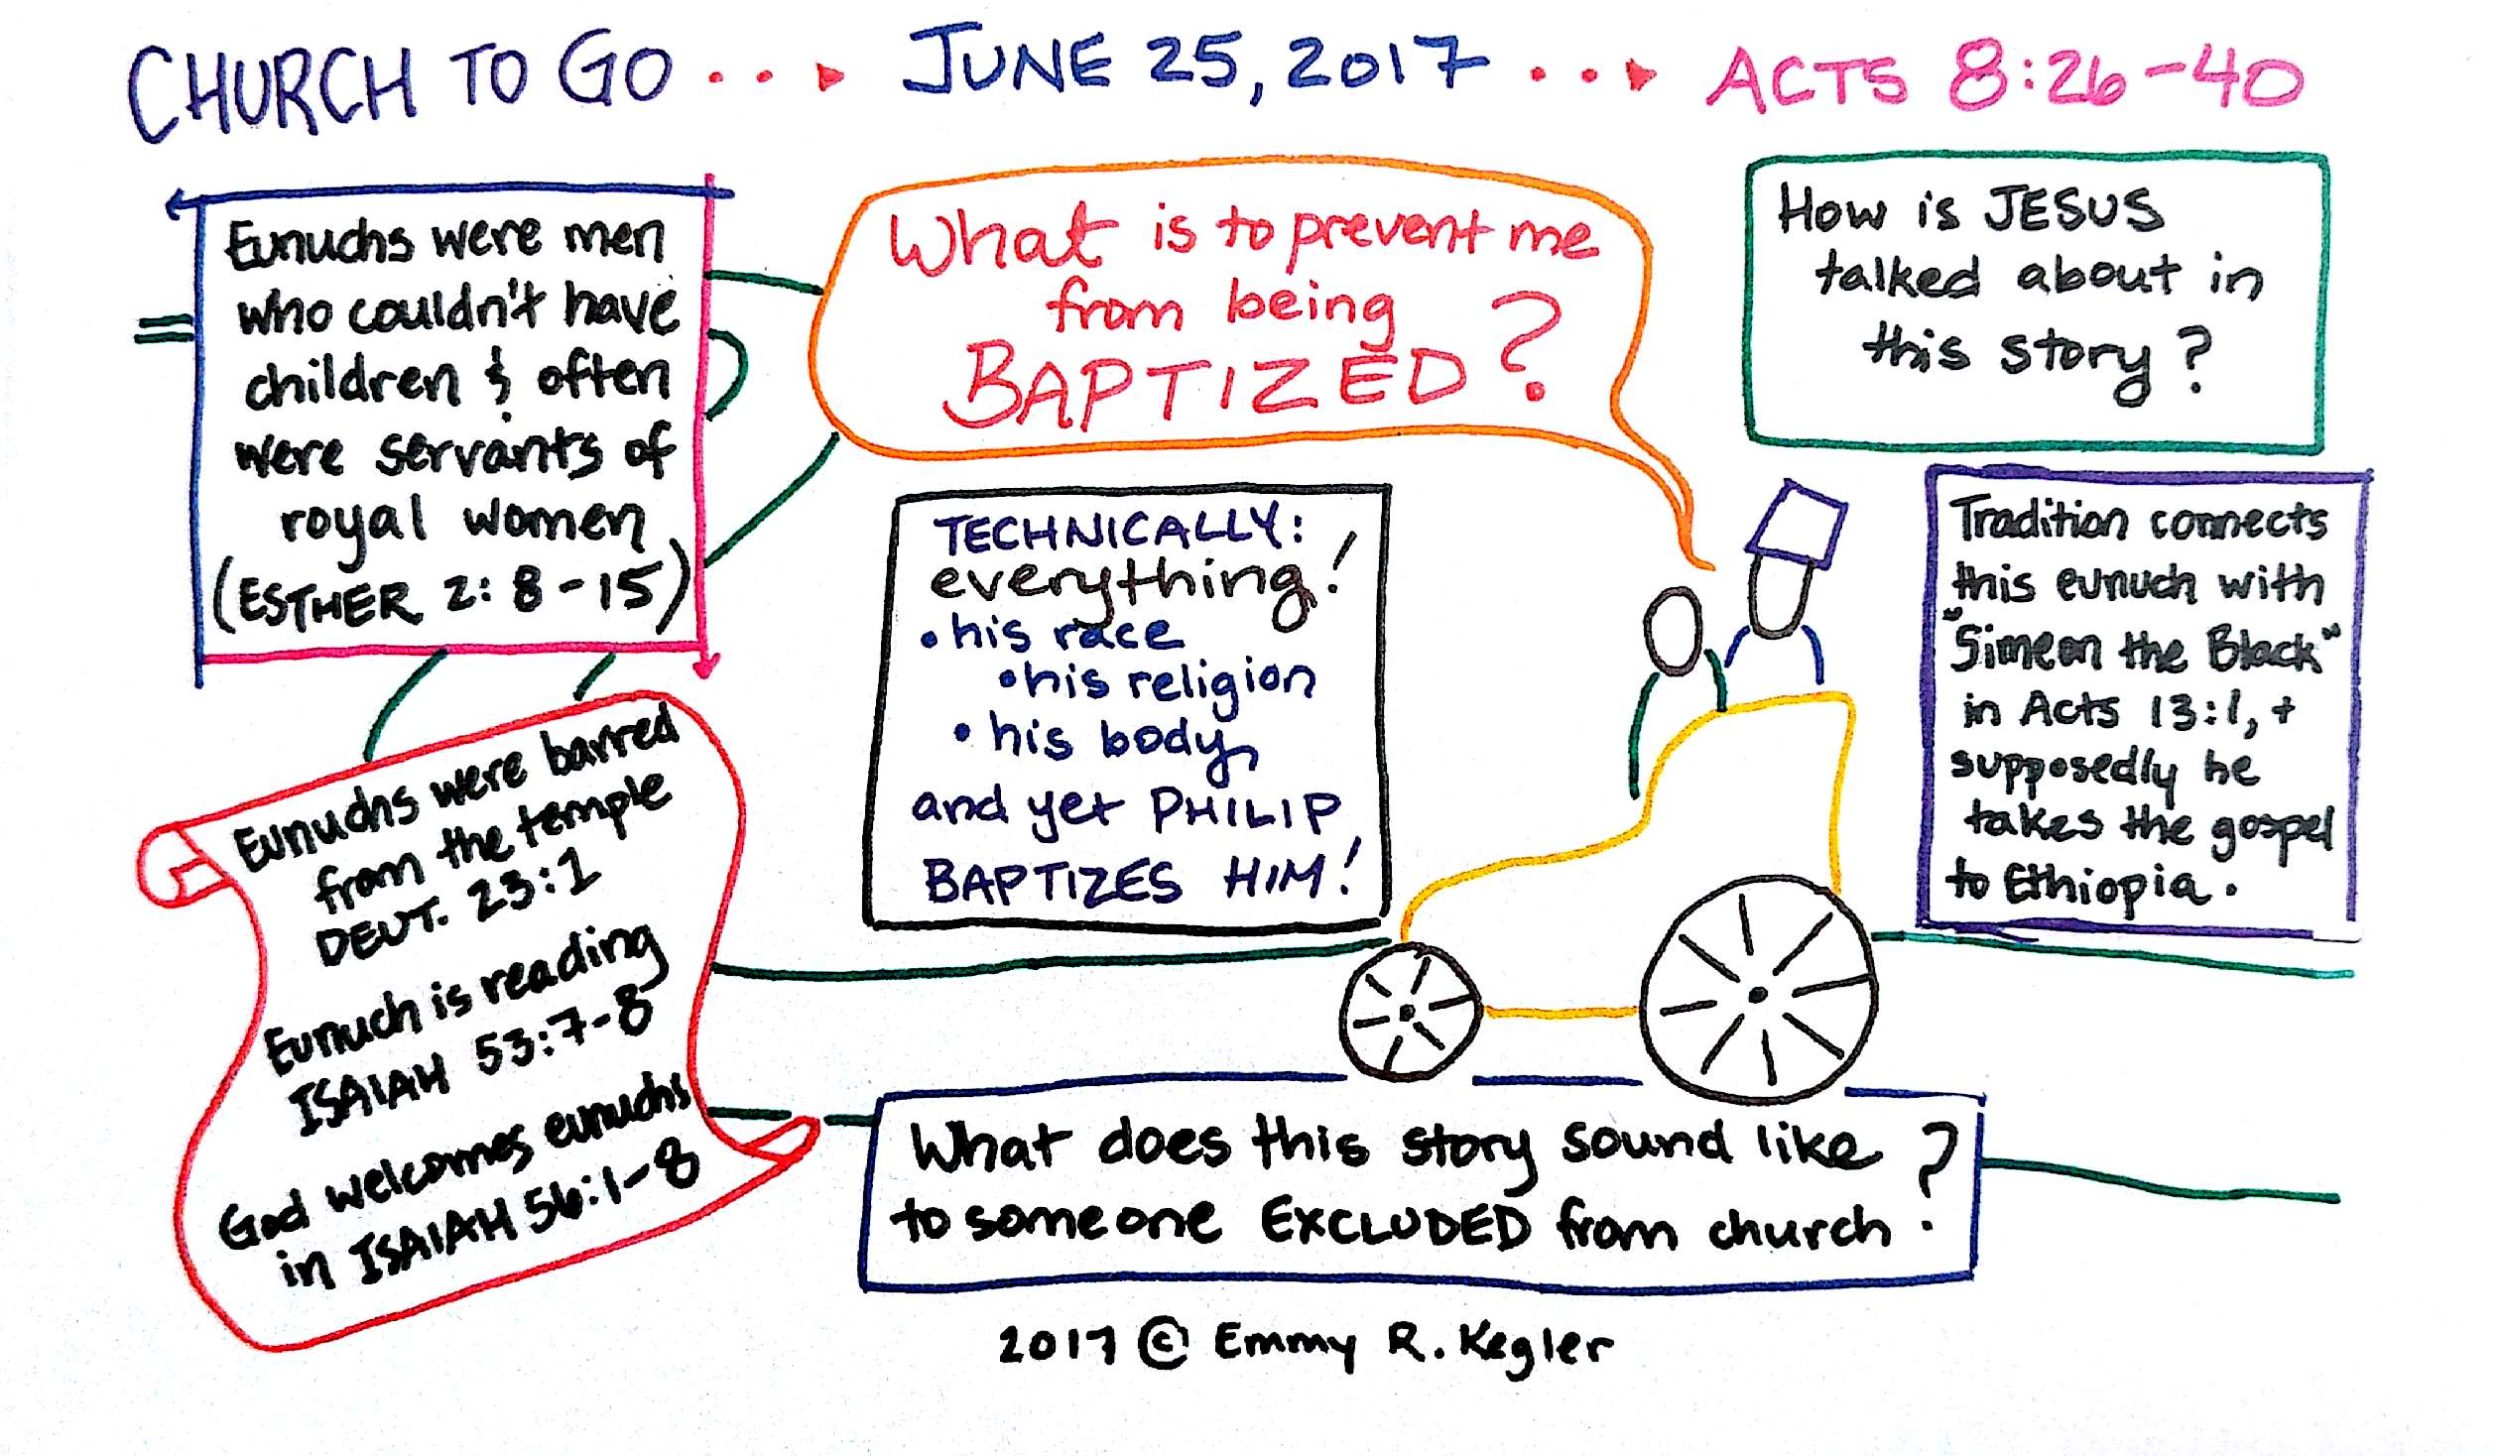 CHURCH TO GO
JUNE 25, 2017
ACTS 8:26-40
Eunuchs were men
who couldn't have
children & often
were servants of
royal women
(ESTHER 2:8-15)
What is to prevent me
from being
BAPTIZED?
How is JESUS
talked about in
this story?
TECHNICALLY:
everything!
• his race
• his religion
• his body
and yet PHILIP
BAPTIZES HIM!
Tradition connects
this eunuch with
"Simeon the Black"
in Acts 13:1, +
supposedly he
takes the gospel
to Ethiopia.
Eunuchs were barred
from the temple
DEUT. 23:1
Eunuch is reading
ISAIAH 53:7-8
God welcomes eunuchs
in ISAIAH 56:1-8
What does this story sound like
to someone EXCLUDED from church?
2017 © Emmy R. Kegler